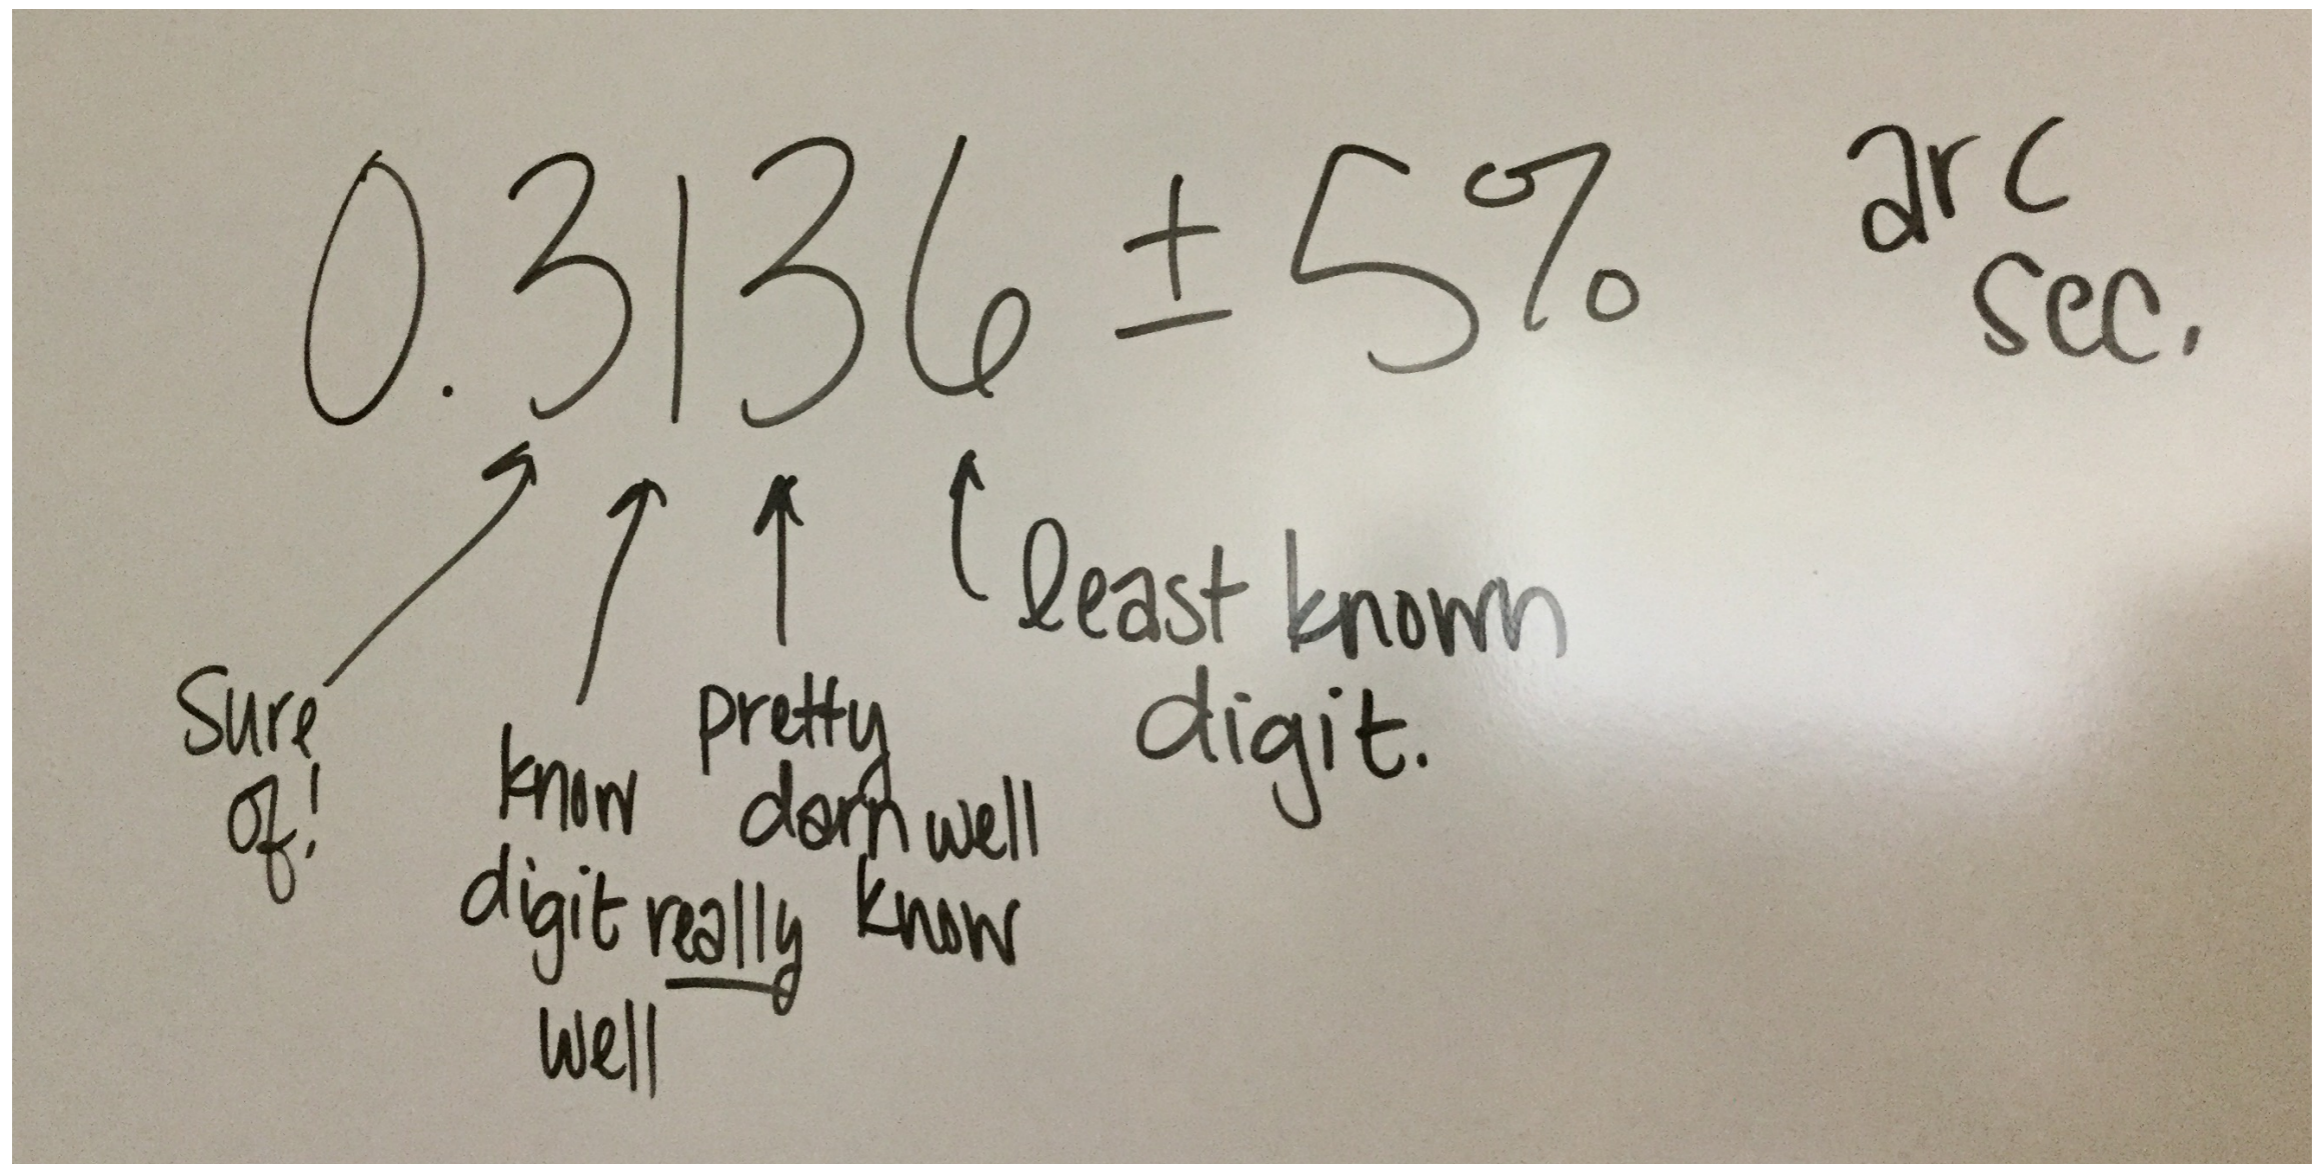 0.3136 ± 5% arc
sec.
Sure
of!
know
digit really
well
pretty
darn well
know
least known
digit.